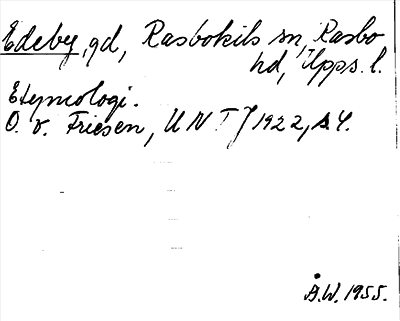 Edeby, gd, Rasbokils sn, Rasbo
hd, Upps. l.
Etymologi.
O. v. Friesen, UNT 1922, s. 4.
Å.W. 1955.